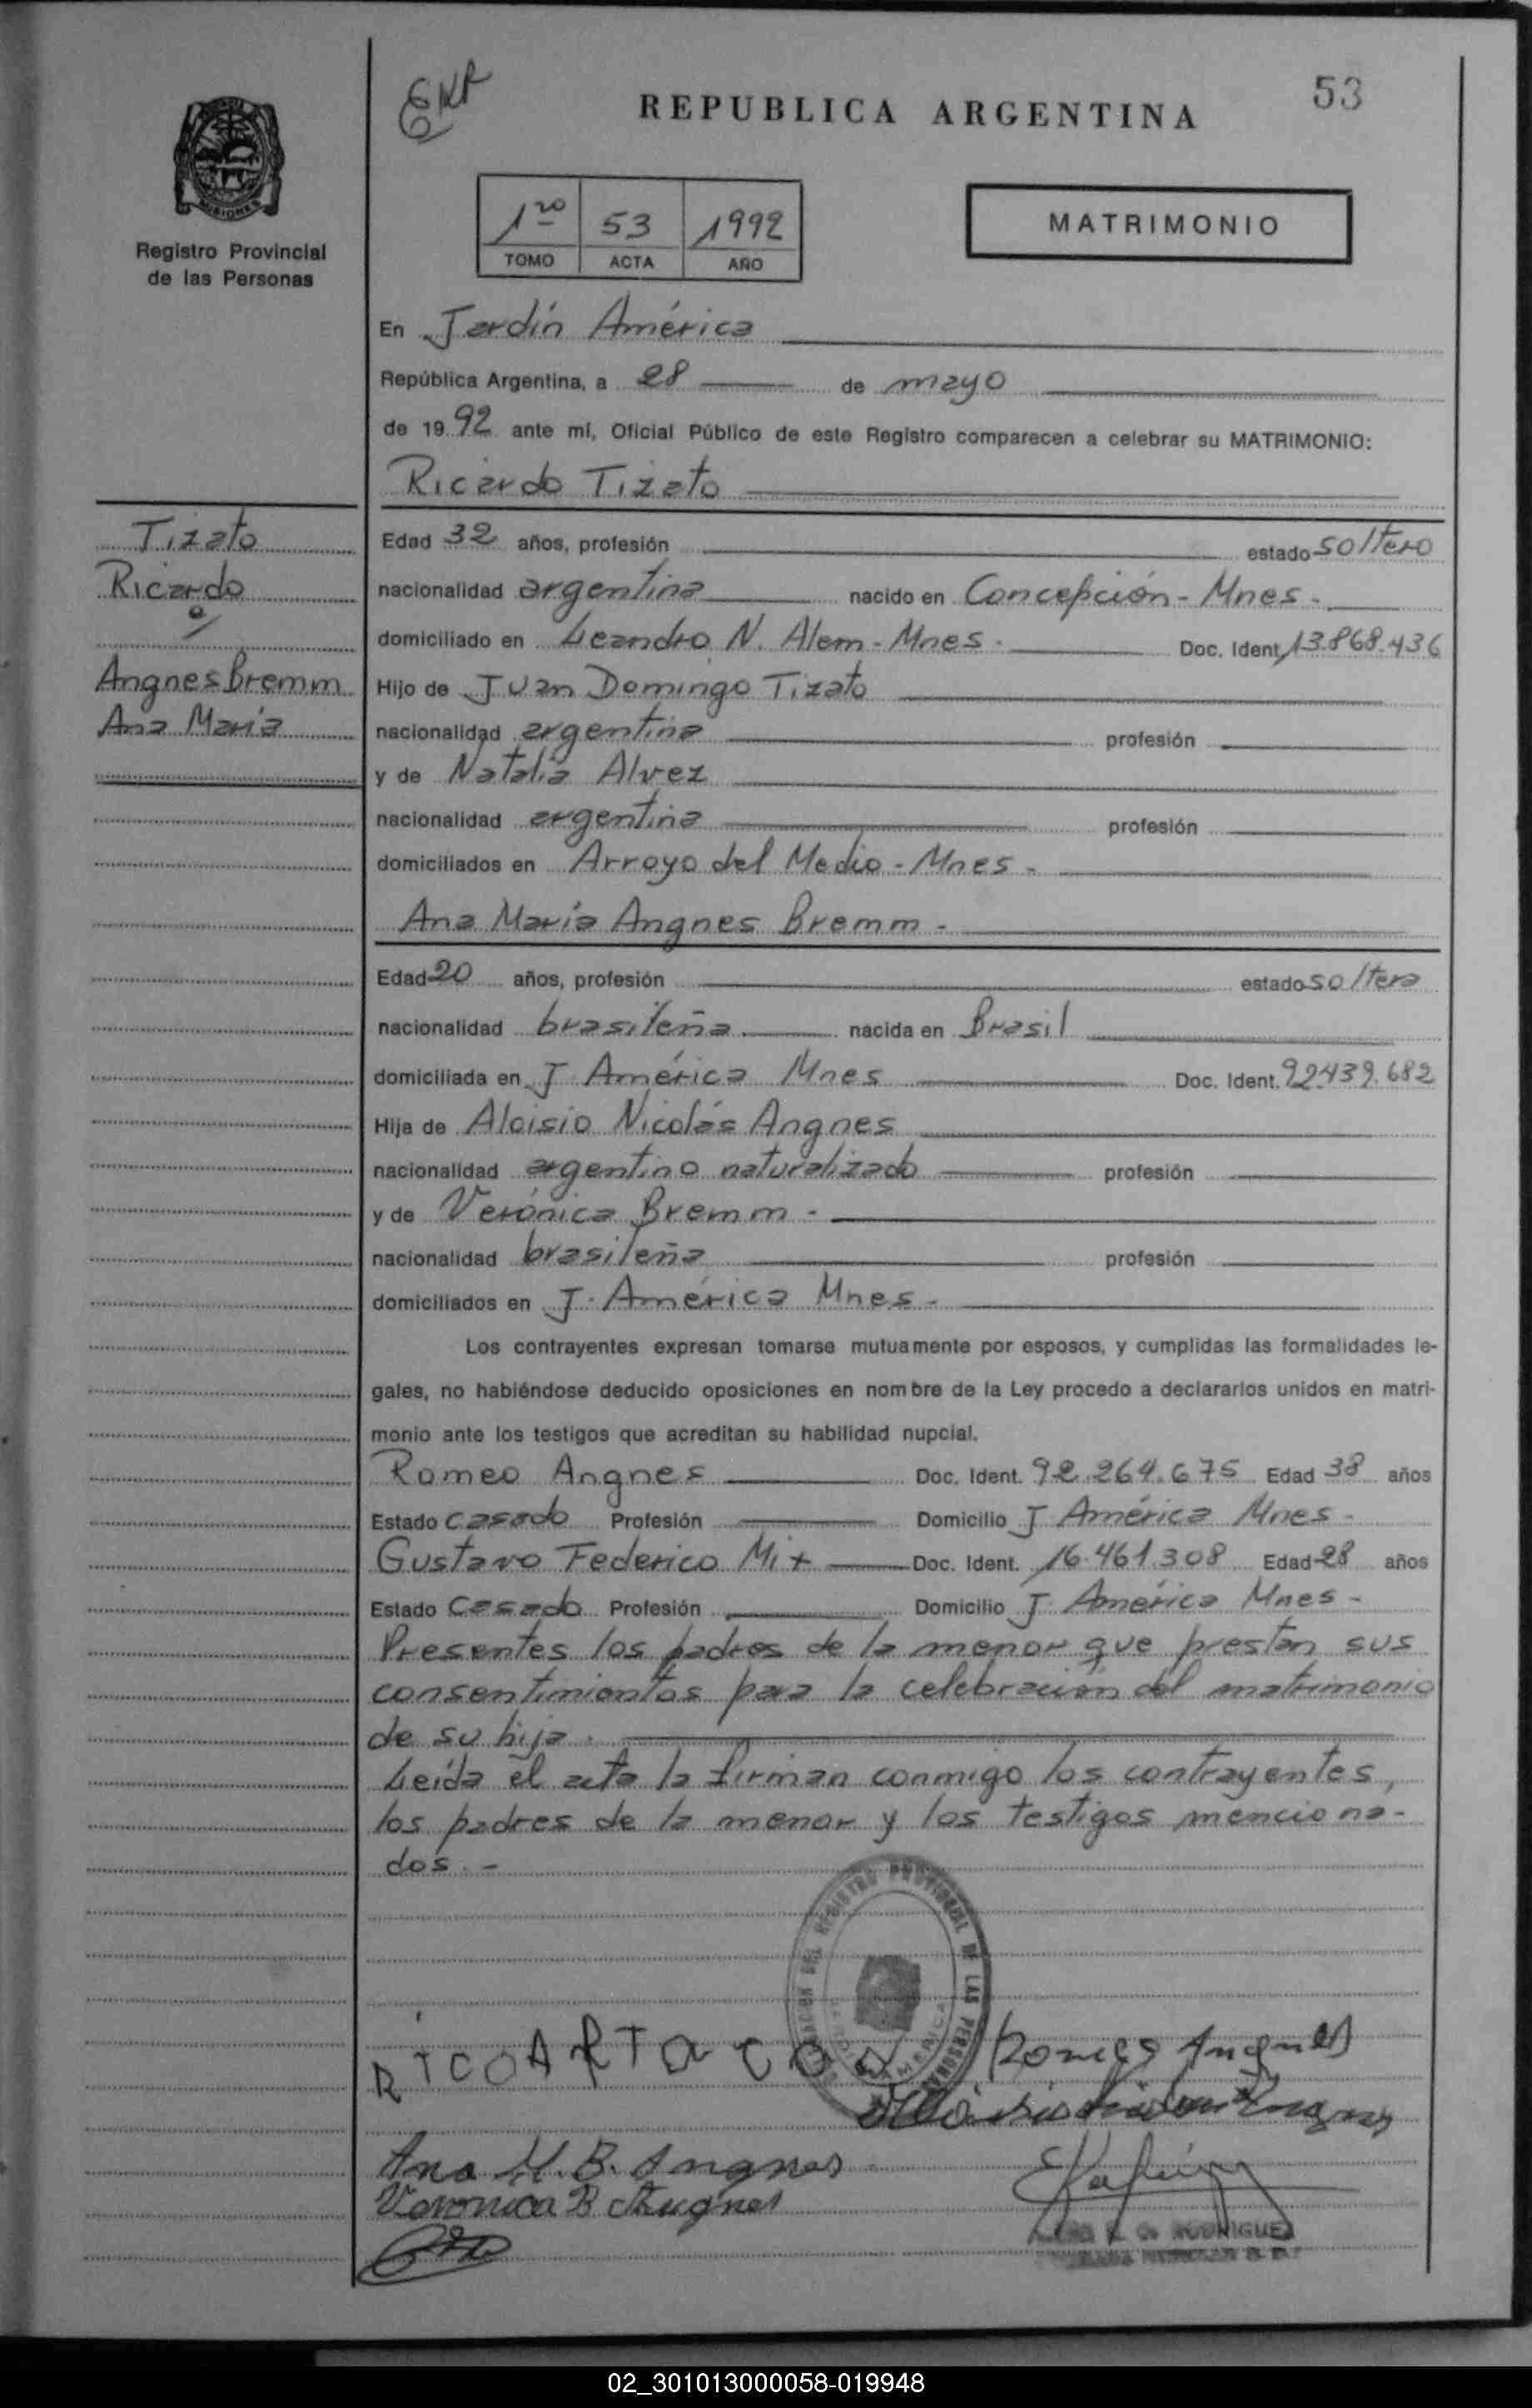 53
REPUBLICA ARGENTINA
MISIONES
Registro Provincial
de las Personas
1ro 53 1992
TOMO ACTA AÑO
MATRIMONIO
En Jardín América
República Argentina, a 28 de mayo
de 1992 ante mí, Oficial Público de este Registro comparecen a celebrar su MATRIMONIO:
Ricardo Tizato
Tizato
Ricardo
Angnes Bremm
Ana María
Edad 32 años, profesión estado soltero
nacionalidad argentina nacido en Concepción - Mnes.
domiciliado en Leandro N. Alem - Mnes. Doc. Ident. 13.868.436
Hijo de Juan Domingo Tizato
nacionalidad argentina profesión
y de Natalia Alvez
nacionalidad argentina profesión
domiciliados en Arroyo del Medio - Mnes -
Ana María Angnes Bremm -
Edad 20 años, profesión estado soltera
nacionalidad brasileña nacida en Brasil
domiciliada en J. América Mnes Doc. Ident. 92.439.682
Hija de Aloisio Nicolás Angnes
nacionalidad argentino naturalizado profesión
y de Verónica Bremm -
nacionalidad brasileña profesión
domiciliados en J. América Mnes -
Los contrayentes expresan tomarse mutuamente por esposos, y cumplidas las formalidades le-
gales, no habiéndose deducido oposiciones en nombre de la Ley procedo a declararlos unidos en matri-
monio ante los testigos que acreditan su habilidad nupcial.
Romeo Angnes Doc. Ident. 92.264.675 Edad 38 años
Estado casado Profesión Domicilio J América Mnes -
Gustavo Federico Mix Doc. Ident. 16.461.308 Edad 28 años
Estado Casado Profesión Domicilio J. América Mnes -
Presentes los padres de la menor que prestan sus
consentimientos para la celebración del matrimonio
de su hija.
Leída el acta la firman conmigo los contrayentes,
los padres de la menor y los testigos menciona-
dos. -
REGISTRO PROVINCIAL DE LAS PERSONAS
AMERICA
Romeo Angnes
Angnes
Ana M. B. Angnes
Veronica B Angnes
RODRIGUEZ
02_301013000058-019948